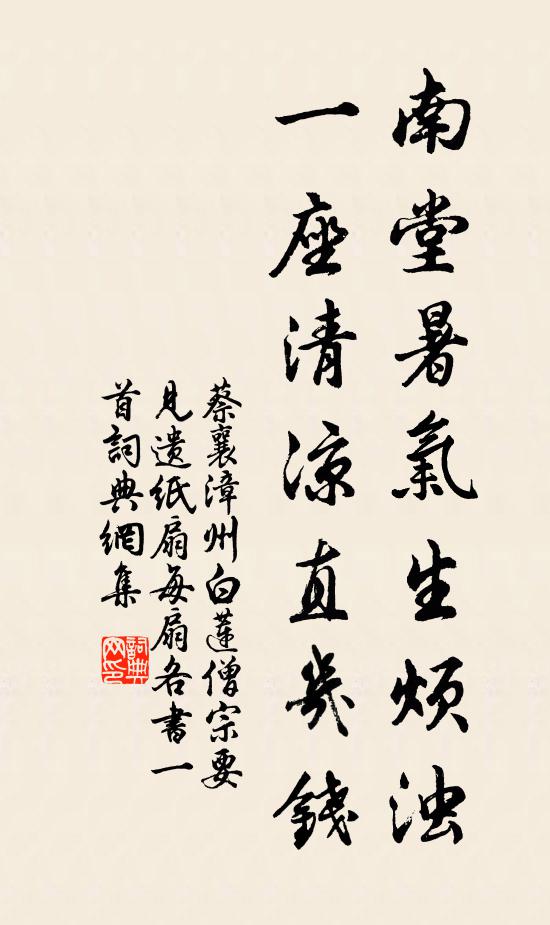 南堂暑氣生煩浊
一座清凉直幾錢
蔡襄漳州白蓮僧宗要
見遗纸扇每扇各書一
首詞典網集
詞典
网印